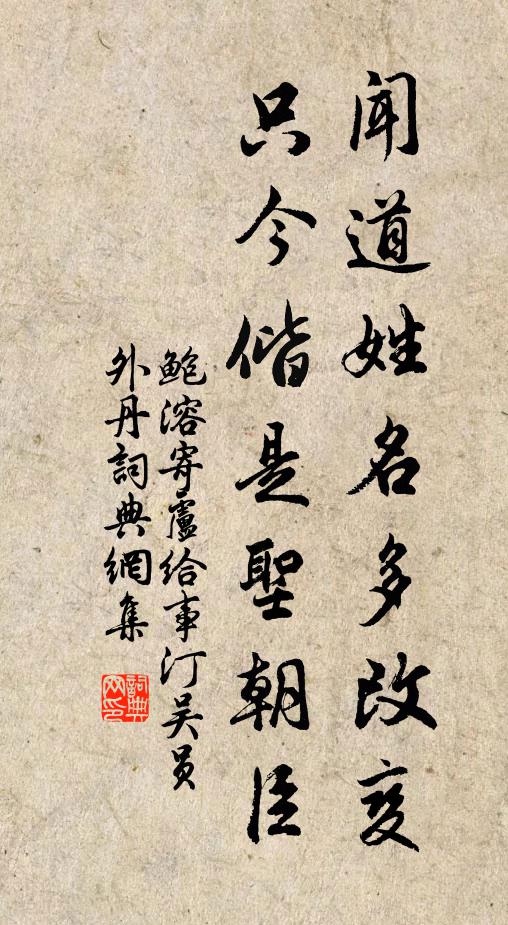 闻道姓名多改变
只今偕是聖朝臣
鲍溶寄盧给事汀吴员
外丹詞典網集
詞典网印